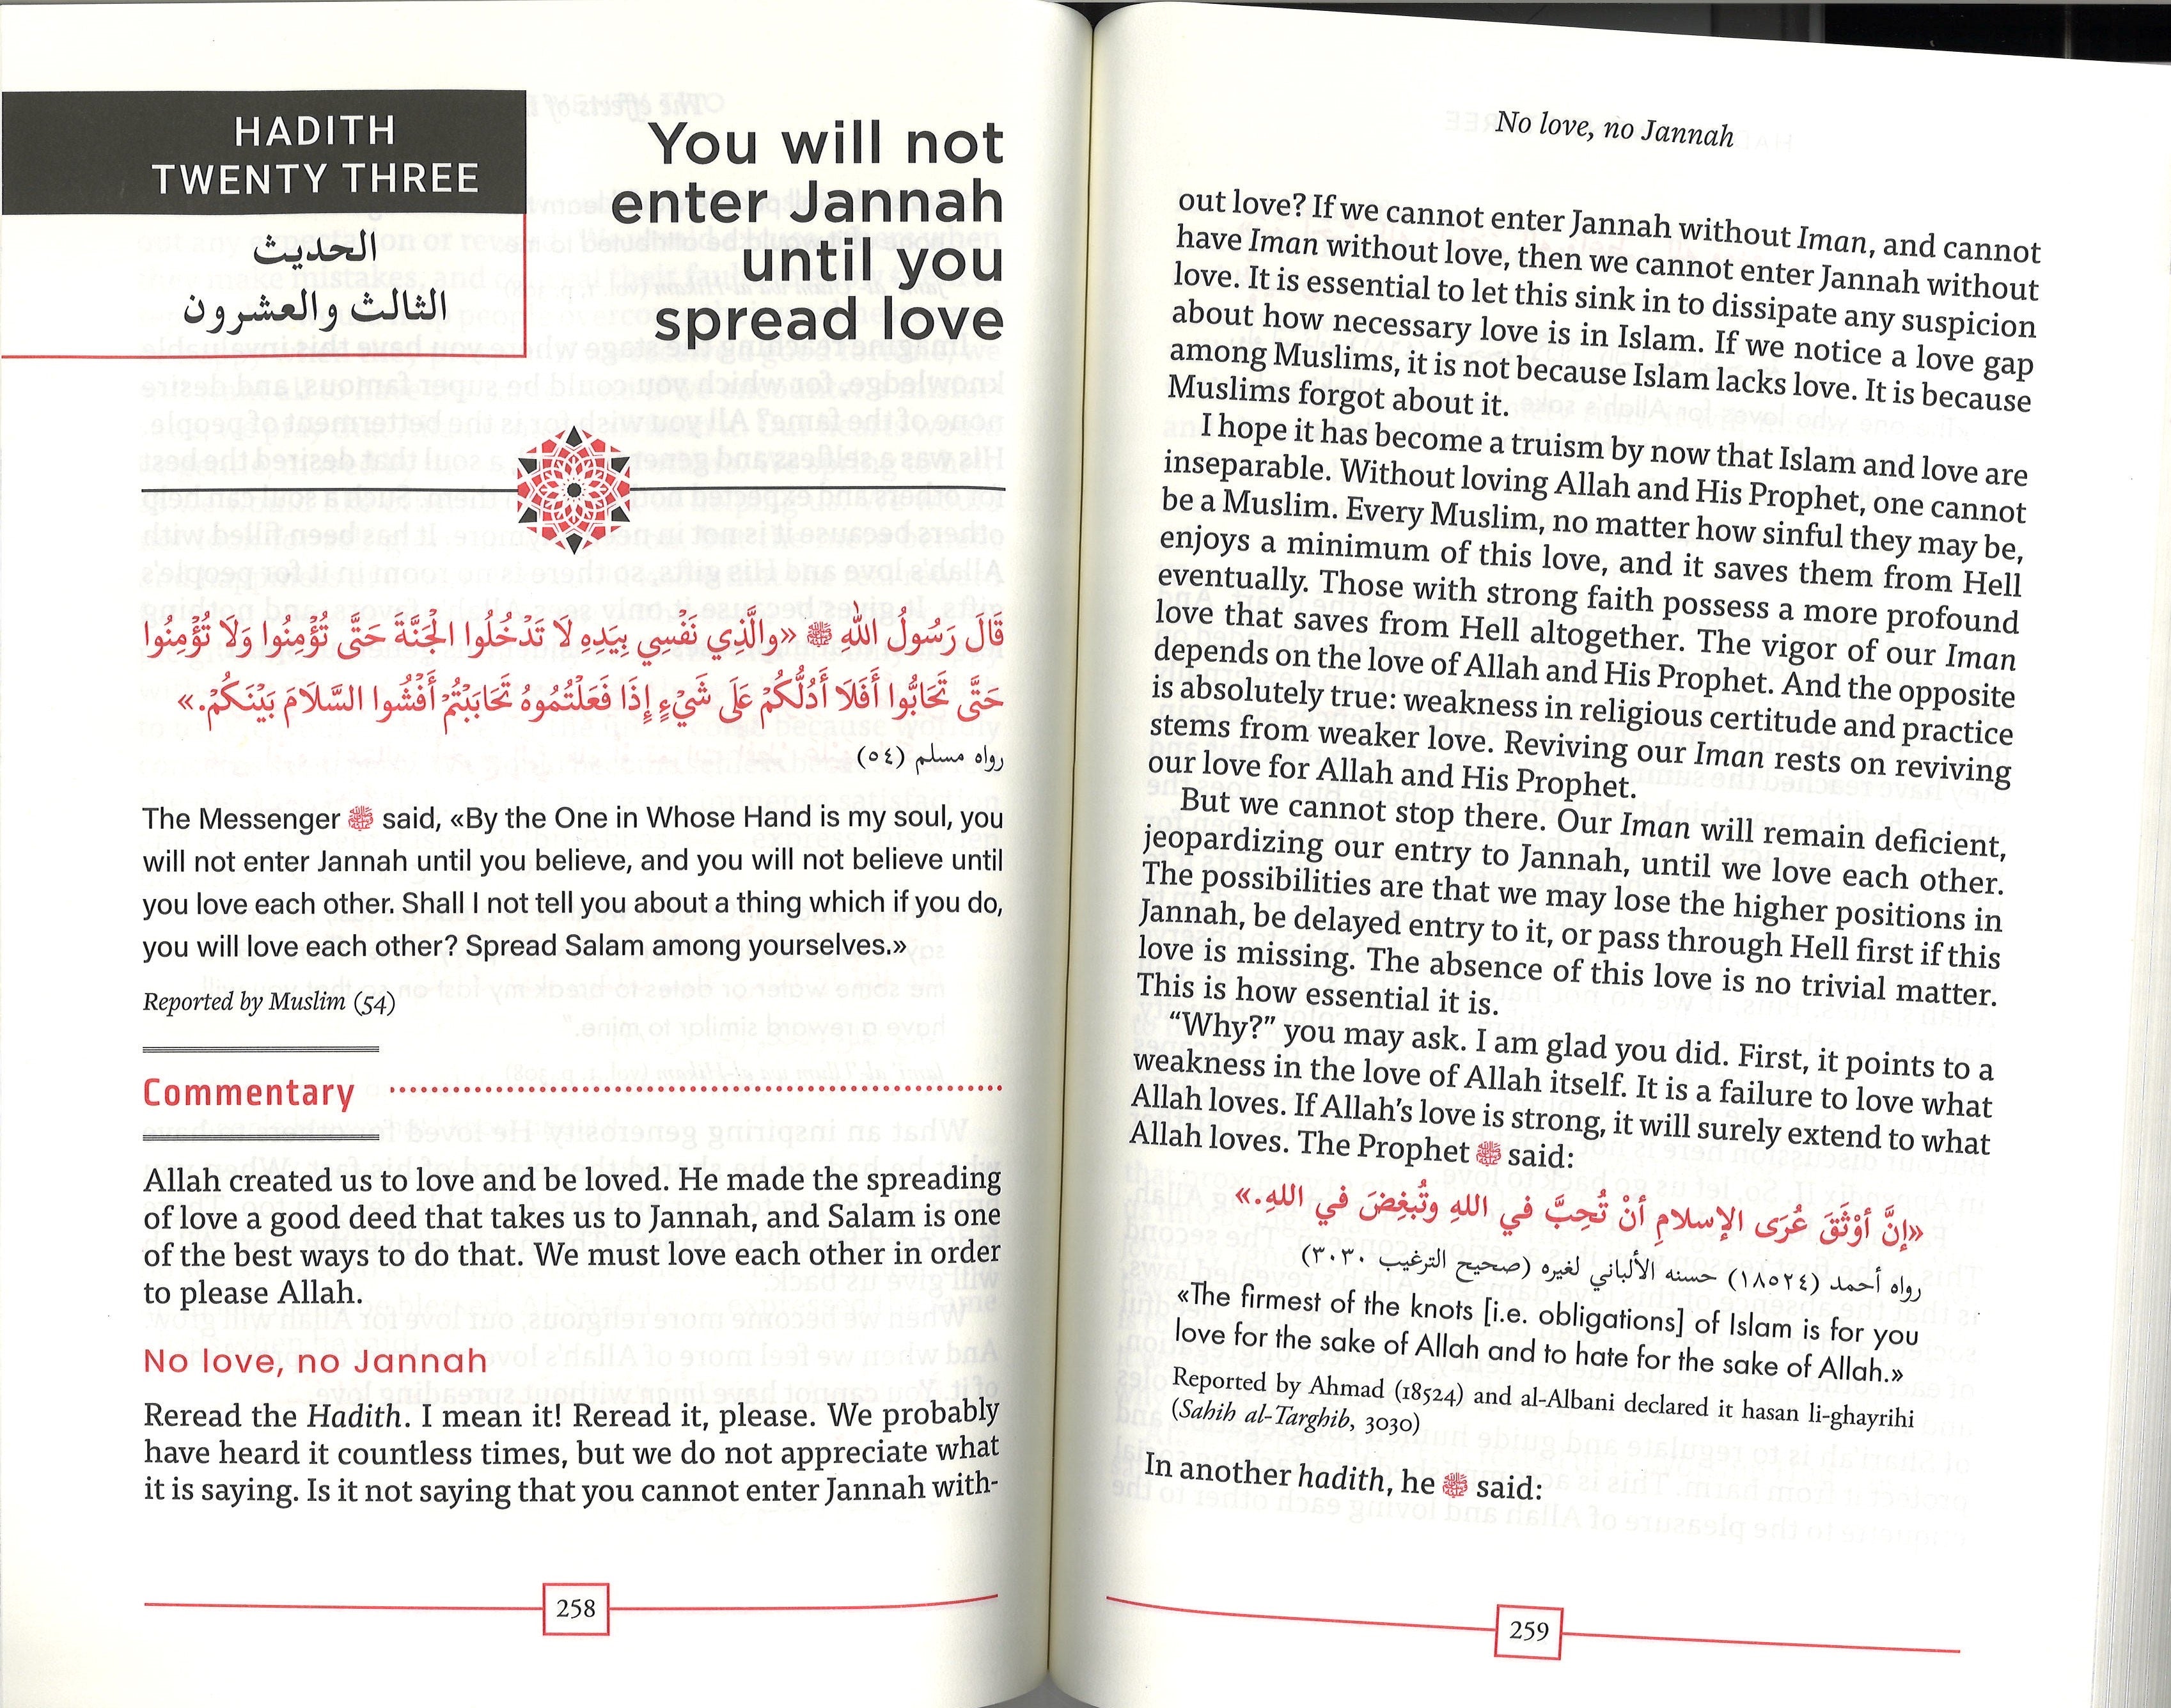 HADITH
TWENTY THREE
الحديث
الثالث والعشرون
You will not
enter Jannah
until you
spread love
قَالَ رَسُولُ اللهِ ﷺ «والَّذي نَفْسِي بِيَدِهِ لَا تَدْخُلُوا الْجَنَّةَ حَتَّى تُؤْمِنُوا وَلَا تُؤْمِنُوا
حَتَّى تَحَابُّوا أَفَلَا أَدُلُّكُمْ عَلَى شَيْءٍ إِذَا فَعَلْتُمُوهُ تَحَابَبْتُمْ أَفْشُوا السَّلَامَ بَيْنَكُمْ.»
رواه مسلم (٥٤)
The Messenger ﷺ said, «By the One in Whose Hand is my soul, you
will not enter Jannah until you believe, and you will not believe until
you love each other. Shall I not tell you about a thing which if you do,
you will love each other? Spread Salam among yourselves.»
Reported by Muslim (54)
Commentary
Allah created us to love and be loved. He made the spreading
of love a good deed that takes us to Jannah, and Salam is one
of the best ways to do that. We must love each other in order
to please Allah.
No love, no Jannah
Reread the Hadith. I mean it! Reread it, please. We probably
have heard it countless times, but we do not appreciate what
it is saying. Is it not saying that you cannot enter Jannah with-
258
No love, no Jannah
out love? If we cannot enter Jannah without Iman, and cannot
have Iman without love, then we cannot enter Jannah without
love. It is essential to let this sink in to dissipate any suspicion
about how necessary love is in Islam. If we notice a love gap
among Muslims, it is not because Islam lacks love. It is because
Muslims forgot about it.
I hope it has become a truism by now that Islam and love are
inseparable. Without loving Allah and His Prophet, one cannot
be a Muslim. Every Muslim, no matter how sinful they may be,
enjoys a minimum of this love, and it saves them from Hell
eventually. Those with strong faith possess a more profound
love that saves from Hell altogether. The vigor of our Iman
depends on the love of Allah and His Prophet. And the opposite
is absolutely true: weakness in religious certitude and practice
stems from weaker love. Reviving our Iman rests on reviving
our love for Allah and His Prophet.
But we cannot stop there. Our Iman will remain deficient,
jeopardizing our entry to Jannah, until we love each other.
The possibilities are that we may lose the higher positions in
Jannah, be delayed entry to it, or pass through Hell first if this
love is missing. The absence of this love is no trivial matter.
This is how essential it is.
“Why?” you may ask. I am glad you did. First, it points to a
weakness in the love of Allah itself. It is a failure to love what
Allah loves. If Allah’s love is strong, it will surely extend to what
Allah loves. The Prophet ﷺ said:
«إنَّ أَوْثَقَ عُرَى الإسلامِ أنْ تُحِبَّ في اللهِ وتُبغِضَ في اللهِ.»
رواه أحمد (١٨٥٢٤) حسنه الألباني لغيره (صحيح الترغيب ٣٠٣٠)
«The firmest of the knots [i.e. obligations] of Islam is for you
love for the sake of Allah and to hate for the sake of Allah.»
Reported by Ahmad (18524) and al-Albani declared it hasan li-ghayrihi
(Sahih al-Targhib, 3030)
In another hadith, he ﷺ said:
259